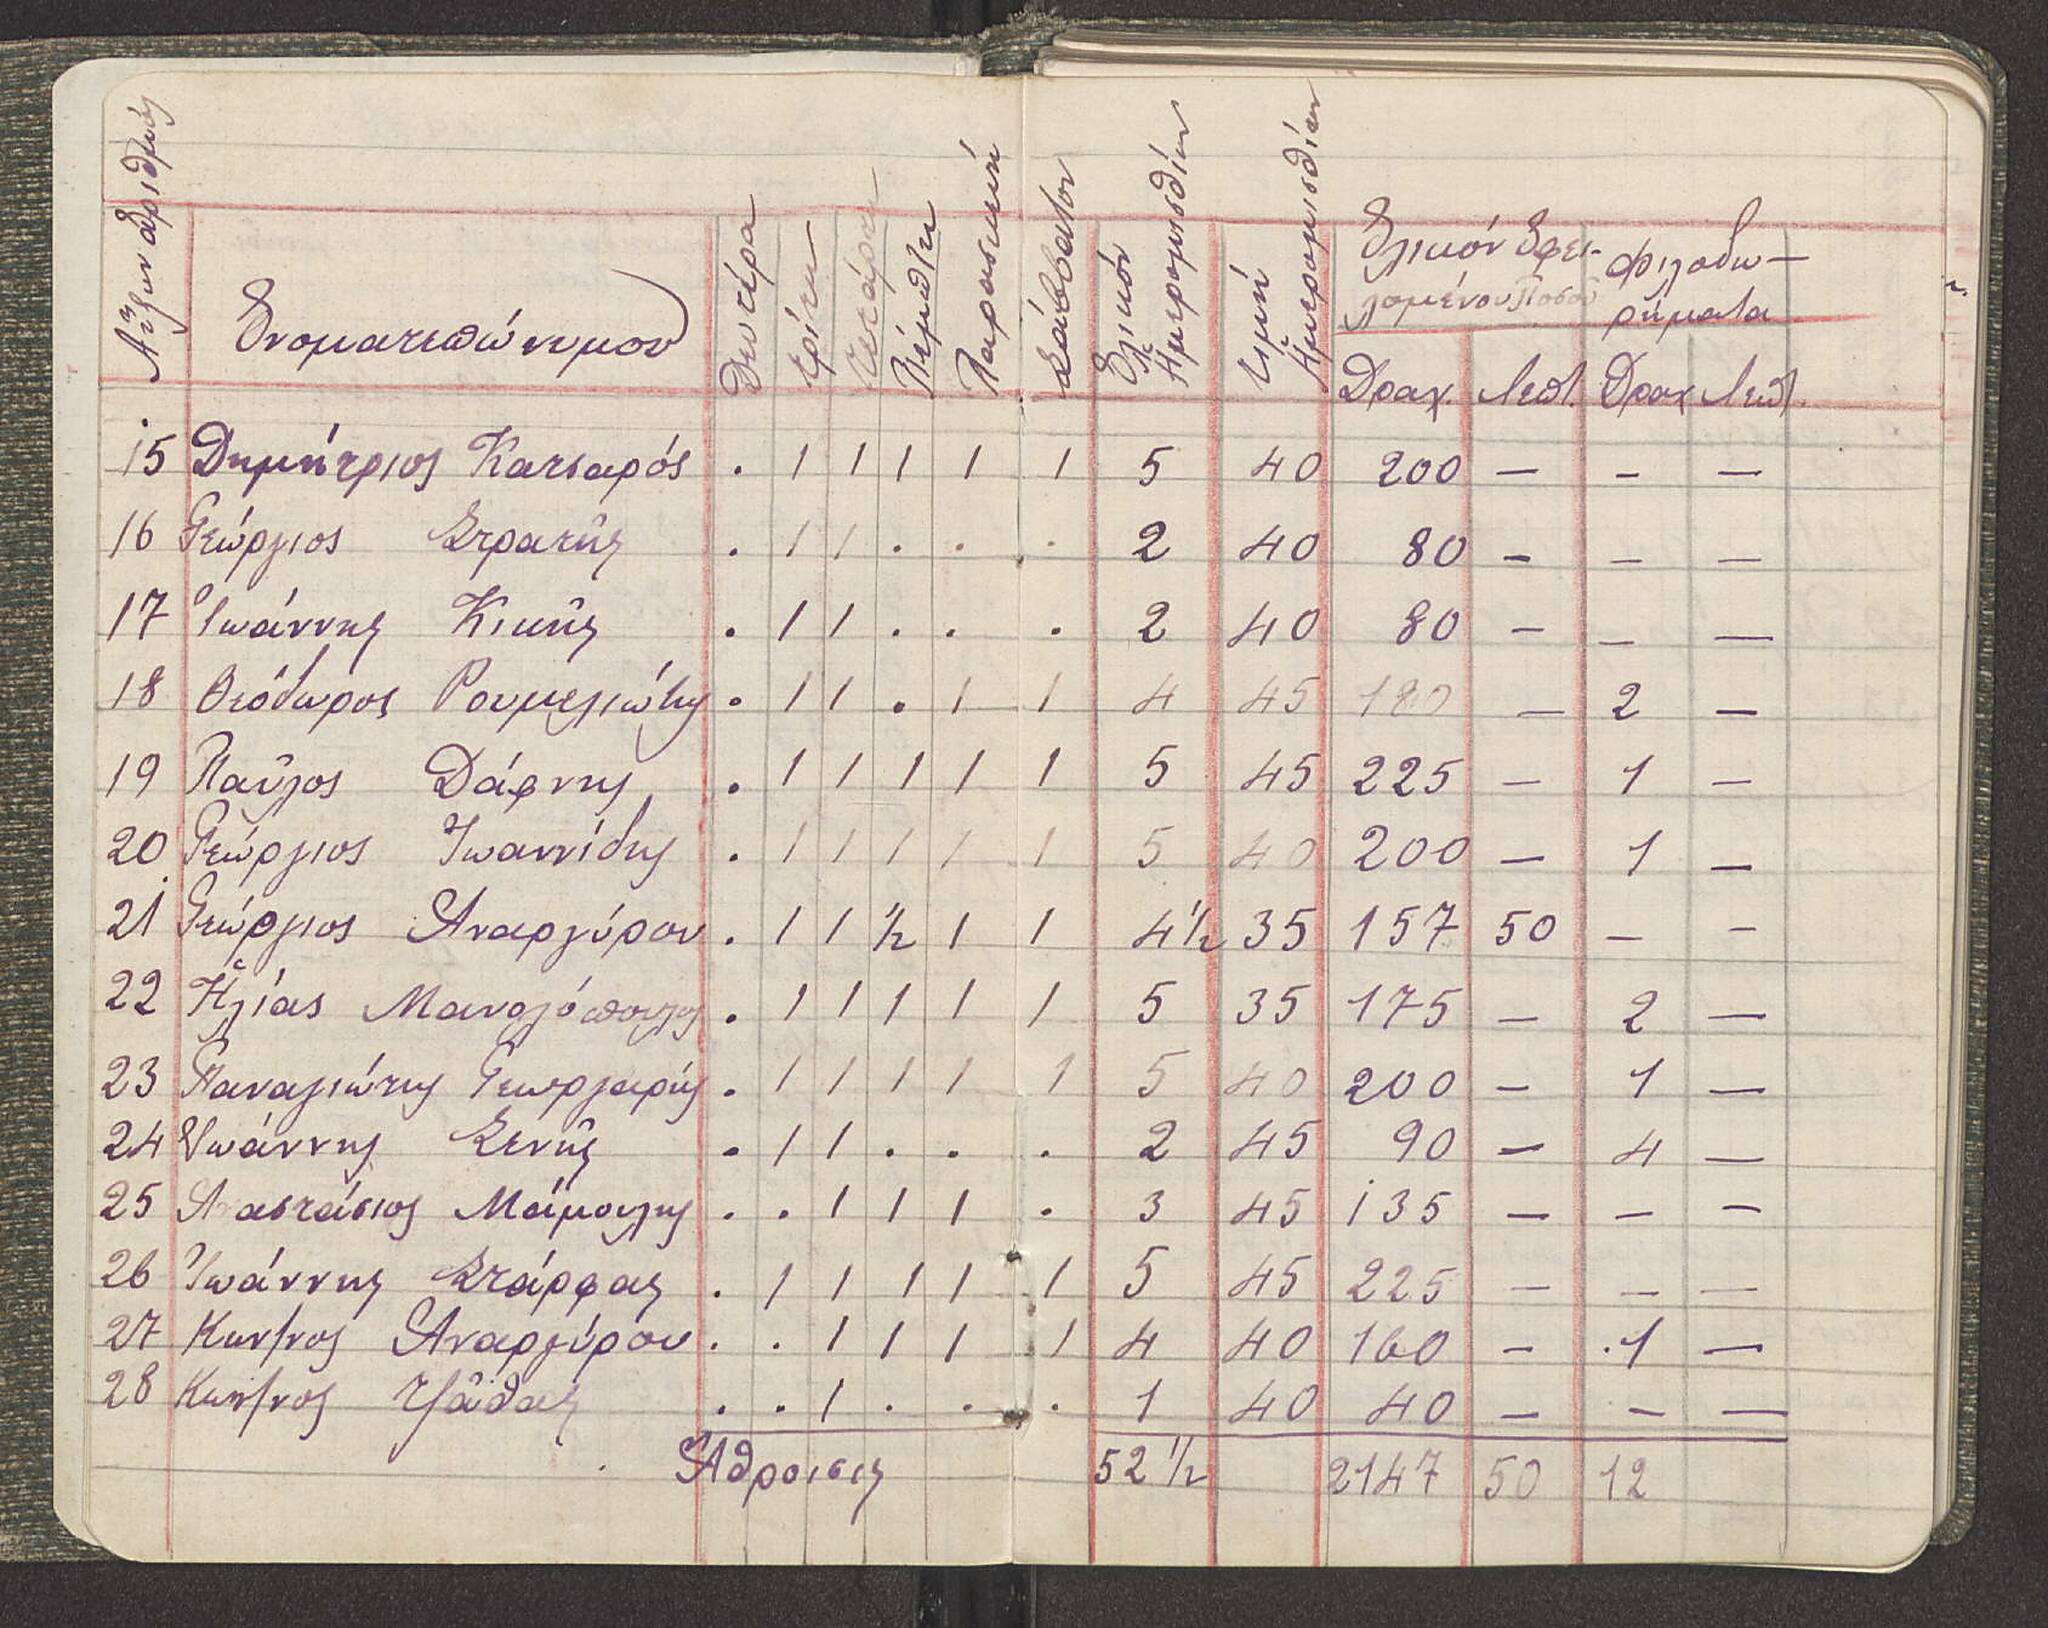 Αὔξων ἀριθμός Ὀνοματεπώνυμον Δευτέρα Τρίτη Τετάρτη Πέμπτη Παρασκευή Σάββατον Ὁλικόν Ἡμερομισθίων Τιμή Ἡμερομισθίων Ὁλικόν Ὀφει- Φιλοδω-
λομένου Ποσοῦ ρήματα
Δραχ. Λεπτ. Δραχ Λεπτ.
15 Δημήτριος Κατσαρός . 1 1 1 1 1 5 40 200 — — —
16 Γεώργιος Στρατῆς . 1 1 . . . 2 40 80 — — —
17 Ἰωάννης Κικῆς . 1 1 . . . 2 40 80 — — —
18 Θεόδωρος Ρουμελιώτης . 1 1 . 1 1 4 45 180 — 2 —
19 Παῦλος Δάφνης . 1 1 1 1 1 5 45 225 — 1 —
20 Γεώργιος Ἰωαννίδης . 1 1 1 1 1 5 40 200 — 1 —
21 Γεώργιος Ἀναργύρου . 1 1 ½ 1 1 4½ 35 157 50 — —
22 Ἠλίας Μανολόπουλος . 1 1 1 1 1 5 35 175 — 2 —
23 Παναγιώτης Γεωργαρής . 1 1 1 1 1 5 40 200 — 1 —
24 Ἰωάννης Ξενῆς . 1 1 . . . 2 45 90 — 4 —
25 Ἀναστάσιος Μάμουλης . . 1 1 1 . 3 45 135 — — —
26 Ἰωάννης Στάρφας . 1 1 1 1 1 5 45 225 — — —
27 Κων/νος Ἀναργύρου . . 1 1 1 1 4 40 160 — .1 —
28 Κων/νος . . 1 . . . 1 40 40 — — —
Ἄθροισις 52 ½ 2147 50 12